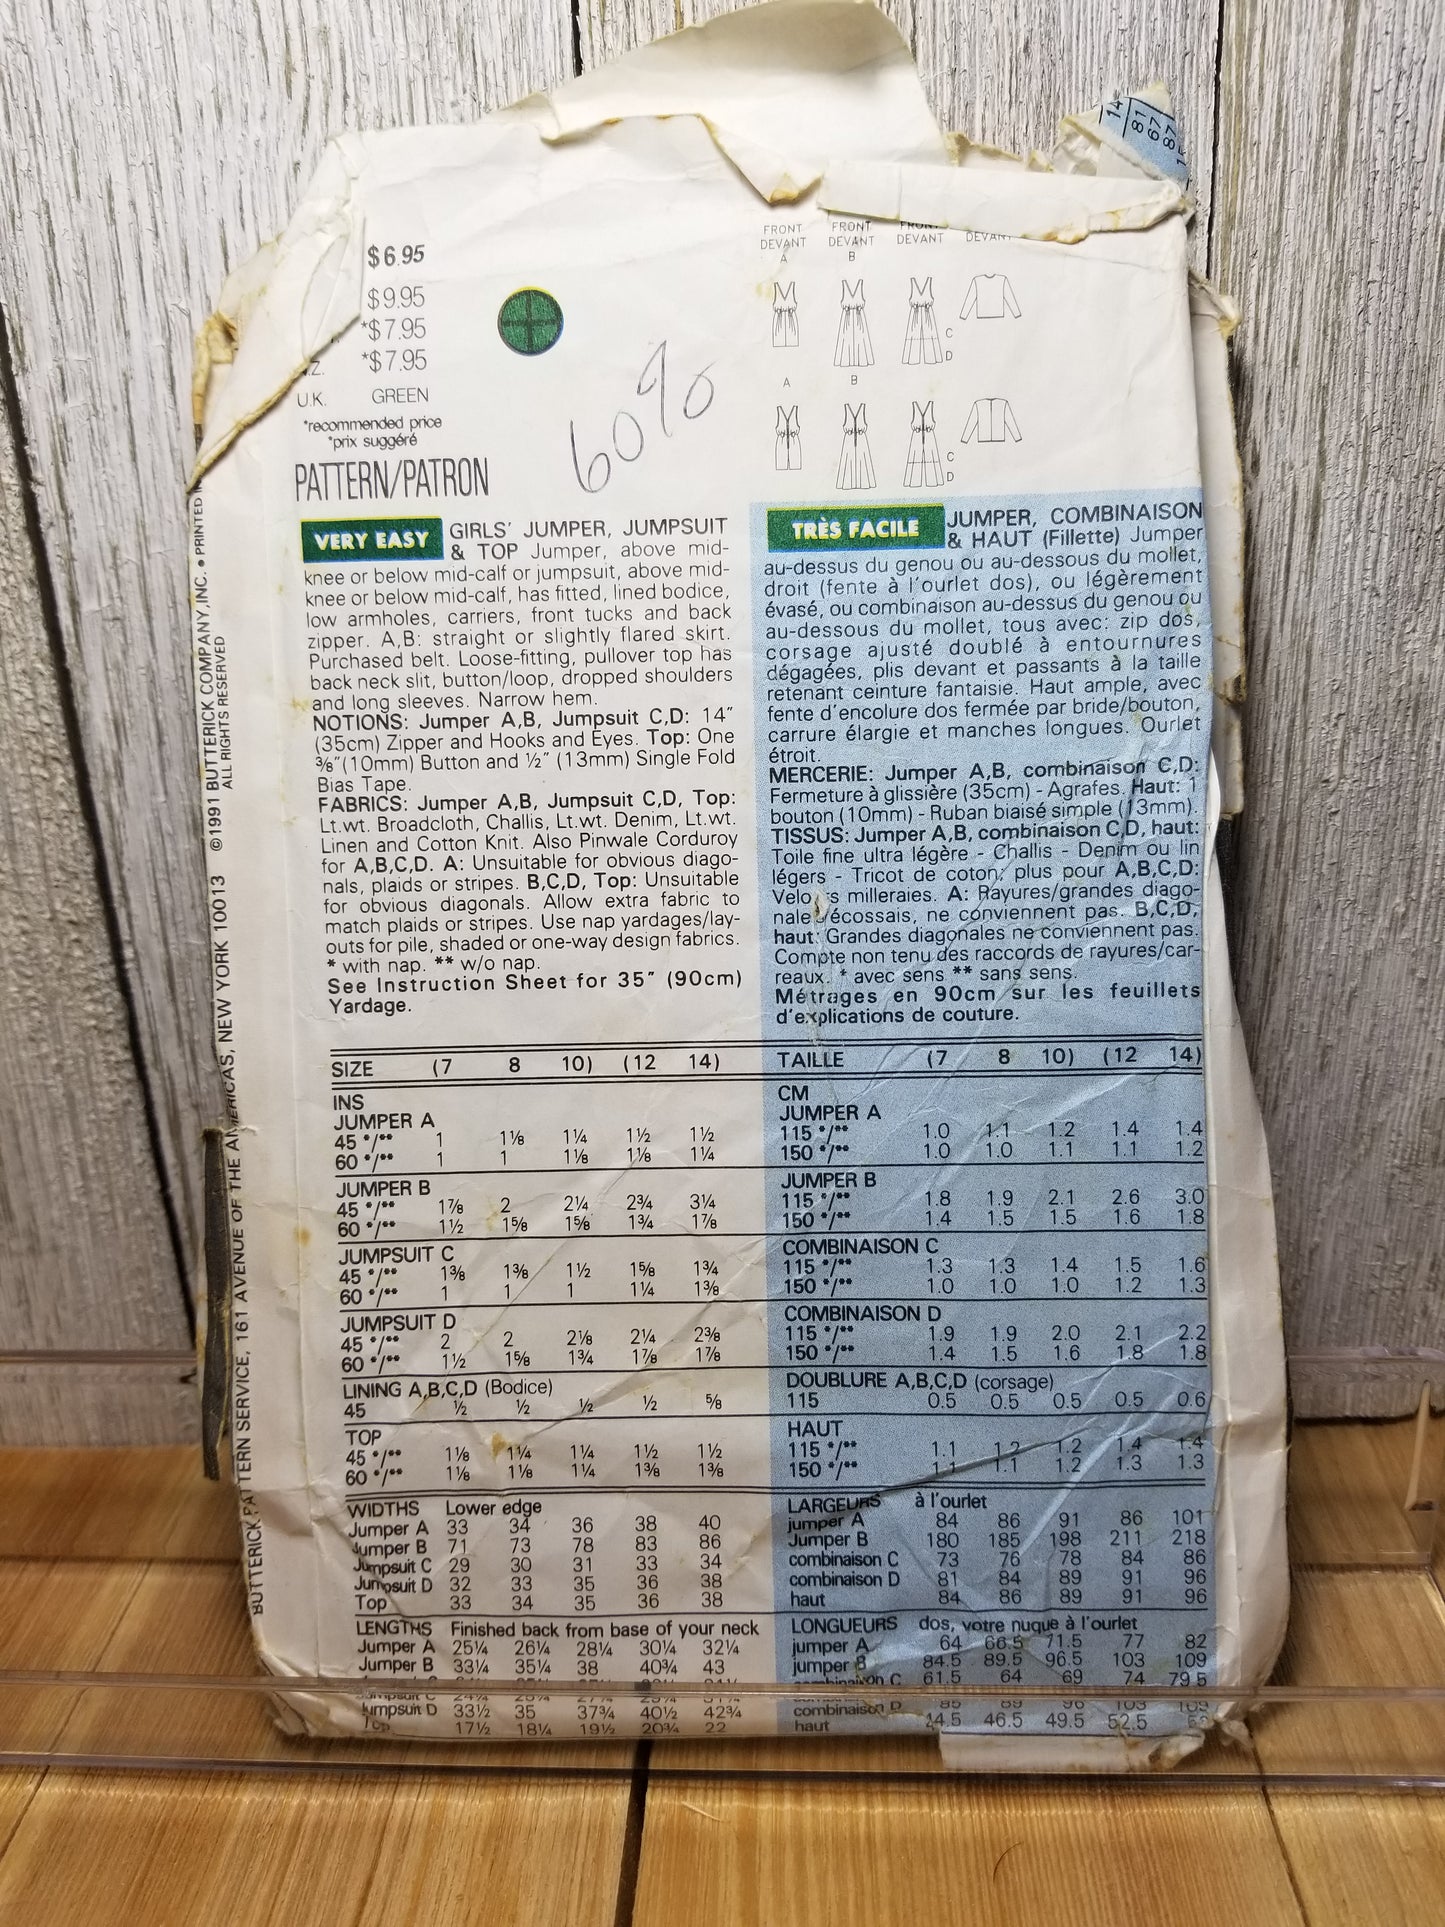 $6.95
$9.95
*$7.95
*$7.95
U.K. GREEN
*recommended price
*prix suggéré
PATTERN/PATRON
60%
FRONT FRONT FRONT
DEVANT DEVANT DEVANT DEVANT
A B
C
D
A B
C
D
VERY EASY GIRLS' JUMPER, JUMPSUIT
& TOP Jumper, above mid-
knee or below mid-calf or jumpsuit, above mid-
knee or below mid-calf, has fitted, lined bodice,
low armholes, carriers, front tucks and back
zipper. A,B: straight or slightly flared skirt.
Purchased belt. Loose-fitting, pullover top has
back neck slit, button/loop, dropped shoulders
and long sleeves. Narrow hem.
NOTIONS: Jumper A,B, Jumpsuit C,D: 14"
(35cm) Zipper and Hooks and Eyes. Top: One
⅜" (10mm) Button and ½" (13mm) Single Fold
Bias Tape.
FABRICS: Jumper A,B, Jumpsuit C,D, Top:
Lt.wt. Broadcloth, Challis, Lt.wt. Denim, Lt.wt.
Linen and Cotton Knit. Also Pinwale Corduroy
for A,B,C,D. A: Unsuitable for obvious diago-
nals, plaids or stripes. B,C,D, Top: Unsuitable
for obvious diagonals. Allow extra fabric to
match plaids or stripes. Use nap yardages/lay-
outs for pile, shaded or one-way design fabrics.
* with nap. ** w/o nap.
See Instruction Sheet for 35" (90cm)
Yardage.
TRÈS FACILE JUMPER, COMBINAISON
& HAUT (Fillette) Jumper
au-dessus du genou ou au-dessous du mollet,
droit (fente à l'ourlet dos), ou légèrement
évasé, ou combinaison au-dessus du genou ou
au-dessous du mollet, tous avec: zip dos,
corsage ajusté doublé à entournures
dégagées, plis devant et passants à la taille
retenant ceinture fantaisie. Haut ample, avec
fente d'encolure dos fermée par bride/bouton,
carrure élargie et manches longues. Ourlet
étroit.
MERCERIE: Jumper A,B, combinaison C,D:
Fermeture à glissière (35cm) - Agrafes. Haut: 1
bouton (10mm) - Ruban biaisé simple (13mm).
TISSUS: Jumper A,B, combinaison C,D, haut:
Toile fine ultra légère - Challis - Denim ou lin
légers - Tricot de coton; plus pour A,B,C,D:
Velours milleraies. A: Rayures/grandes diago-
nales/écossais, ne conviennent pas. B,C,D,
haut: Grandes diagonales ne conviennent pas.
Compte non tenu des raccords de rayures/car-
reaux. * avec sens ** sans sens.
Métrages en 90cm sur les feuillets
d'explications de couture.
SIZE (7 8 10) (12 14)
INS
JUMPER A
45 */** 1 1⅛ 1¼ 1½ 1½
60 */** 1 1 1⅛ 1⅛ 1¼
JUMPER B
45 */** 1⅞ 2 2¼ 2¾ 3¼
60 */** 1½ 1⅝ 1⅝ 1¾ 1⅞
JUMPSUIT C
45 */** 1⅜ 1⅜ 1½ 1⅝ 1¾
60 */** 1 1 1 1¼ 1⅜
JUMPSUIT D
45 */** 2 2 2⅛ 2¼ 2⅜
60 */** 1½ 1⅝ 1¾ 1⅞ 1⅞
LINING A,B,C,D (Bodice)
45 ½ ½ ½ ½ ⅝
TOP
45 */** 1⅛ 1¼ 1¼ 1½ 1½
60 */** 1⅛ 1⅛ 1¼ 1⅜ 1⅜
WIDTHS Lower edge
Jumper A 33 34 36 38 40
Jumper B 71 73 78 83 86
Jumpsuit C 29 30 31 33 34
Jumpsuit D 32 33 35 36 38
Top 33 34 35 36 38
LENGTHS Finished back from base of your neck
Jumper A 25¼ 26¼ 28¼ 30¼ 32¼
Jumper B 33¼ 35¼ 38 40¾ 43
Jumpsuit C
Jumpsuit D 33½ 35 37¾ 40½ 42¾
Top 17½ 18¼ 19½ 20¾ 22
TAILLE (7 8 10) (12 14)
CM
JUMPER A
115 */** 1.0 1.1 1.2 1.4 1.4
150 */** 1.0 1.0 1.1 1.1 1.2
JUMPER B
115 */** 1.8 1.9 2.1 2.6 3.0
150 */** 1.4 1.5 1.5 1.6 1.8
COMBINAISON C
115 */** 1.3 1.3 1.4 1.5 1.6
150 */** 1.0 1.0 1.0 1.2 1.3
COMBINAISON D
115 */** 1.9 1.9 2.0 2.1 2.2
150 */** 1.4 1.5 1.6 1.8 1.8
DOUBLURE A,B,C,D (corsage)
115 0.5 0.5 0.5 0.5 0.6
HAUT
115 */** 1.1 1.2 1.2 1.4 1.4
150 */** 1.1 1.1 1.2 1.3 1.3
LARGEURS à l'ourlet
jumper A 84 86 91 86 101
Jumper B 180 185 198 211 218
combinaison C 73 76 78 84 86
combinaison D 81 84 89 91 96
haut 84 86 89 91 96
LONGUEURS dos, votre nuque à l'ourlet
jumper A 64 66.5 71.5 77 82
jumper B 84.5 89.5 96.5 103 109
combinaison C 61.5 64 69 74 79.5
combinaison D 85 89 96 103 109
haut 44.5 46.5 49.5 52.5
BUTTERICK PATTERN SERVICE, 161 AVENUE OF THE AMERICAS, NEW YORK 10013 ©1991 BUTTERICK COMPANY, INC. • PRINTED
ALL RIGHTS RESERVED